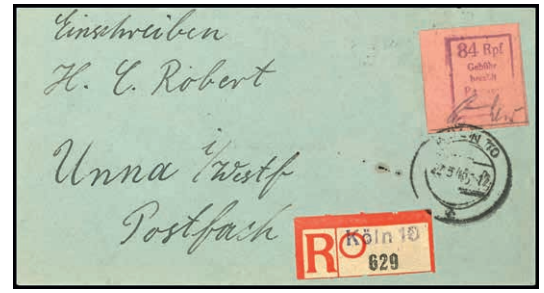 Einschreiben
H. C. Robert
Unna i/Westf
Postfach
84 Rpf
Gebühr
bezahlt
R Köln 10
629